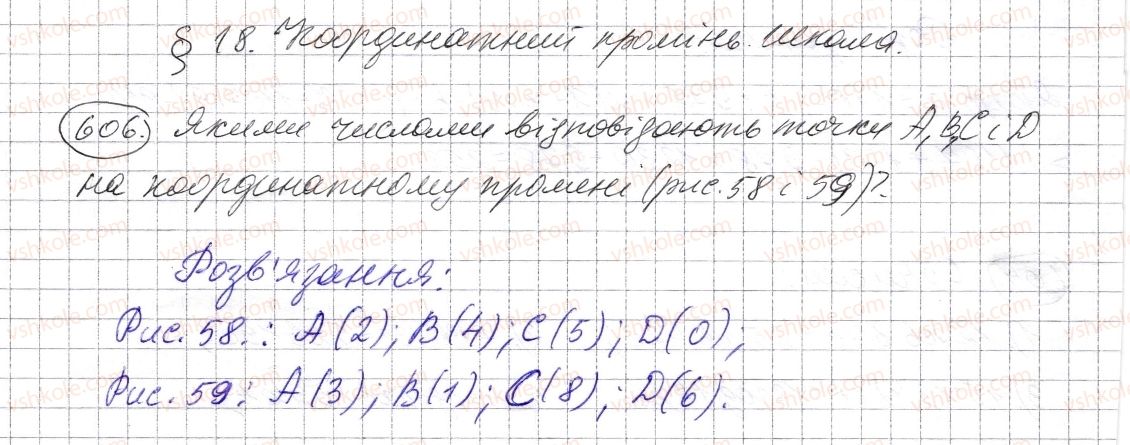 § 18. Координатний промінь. Шкала.
606. Якими числами відповідають точки A, B, C і D
на координатному промені (рис. 58 і 59)?
Розв'язання:
Рис. 58.: A(2); B(4); C(5); D(0);
Рис. 59: A(3); B(1); C(8); D(6).